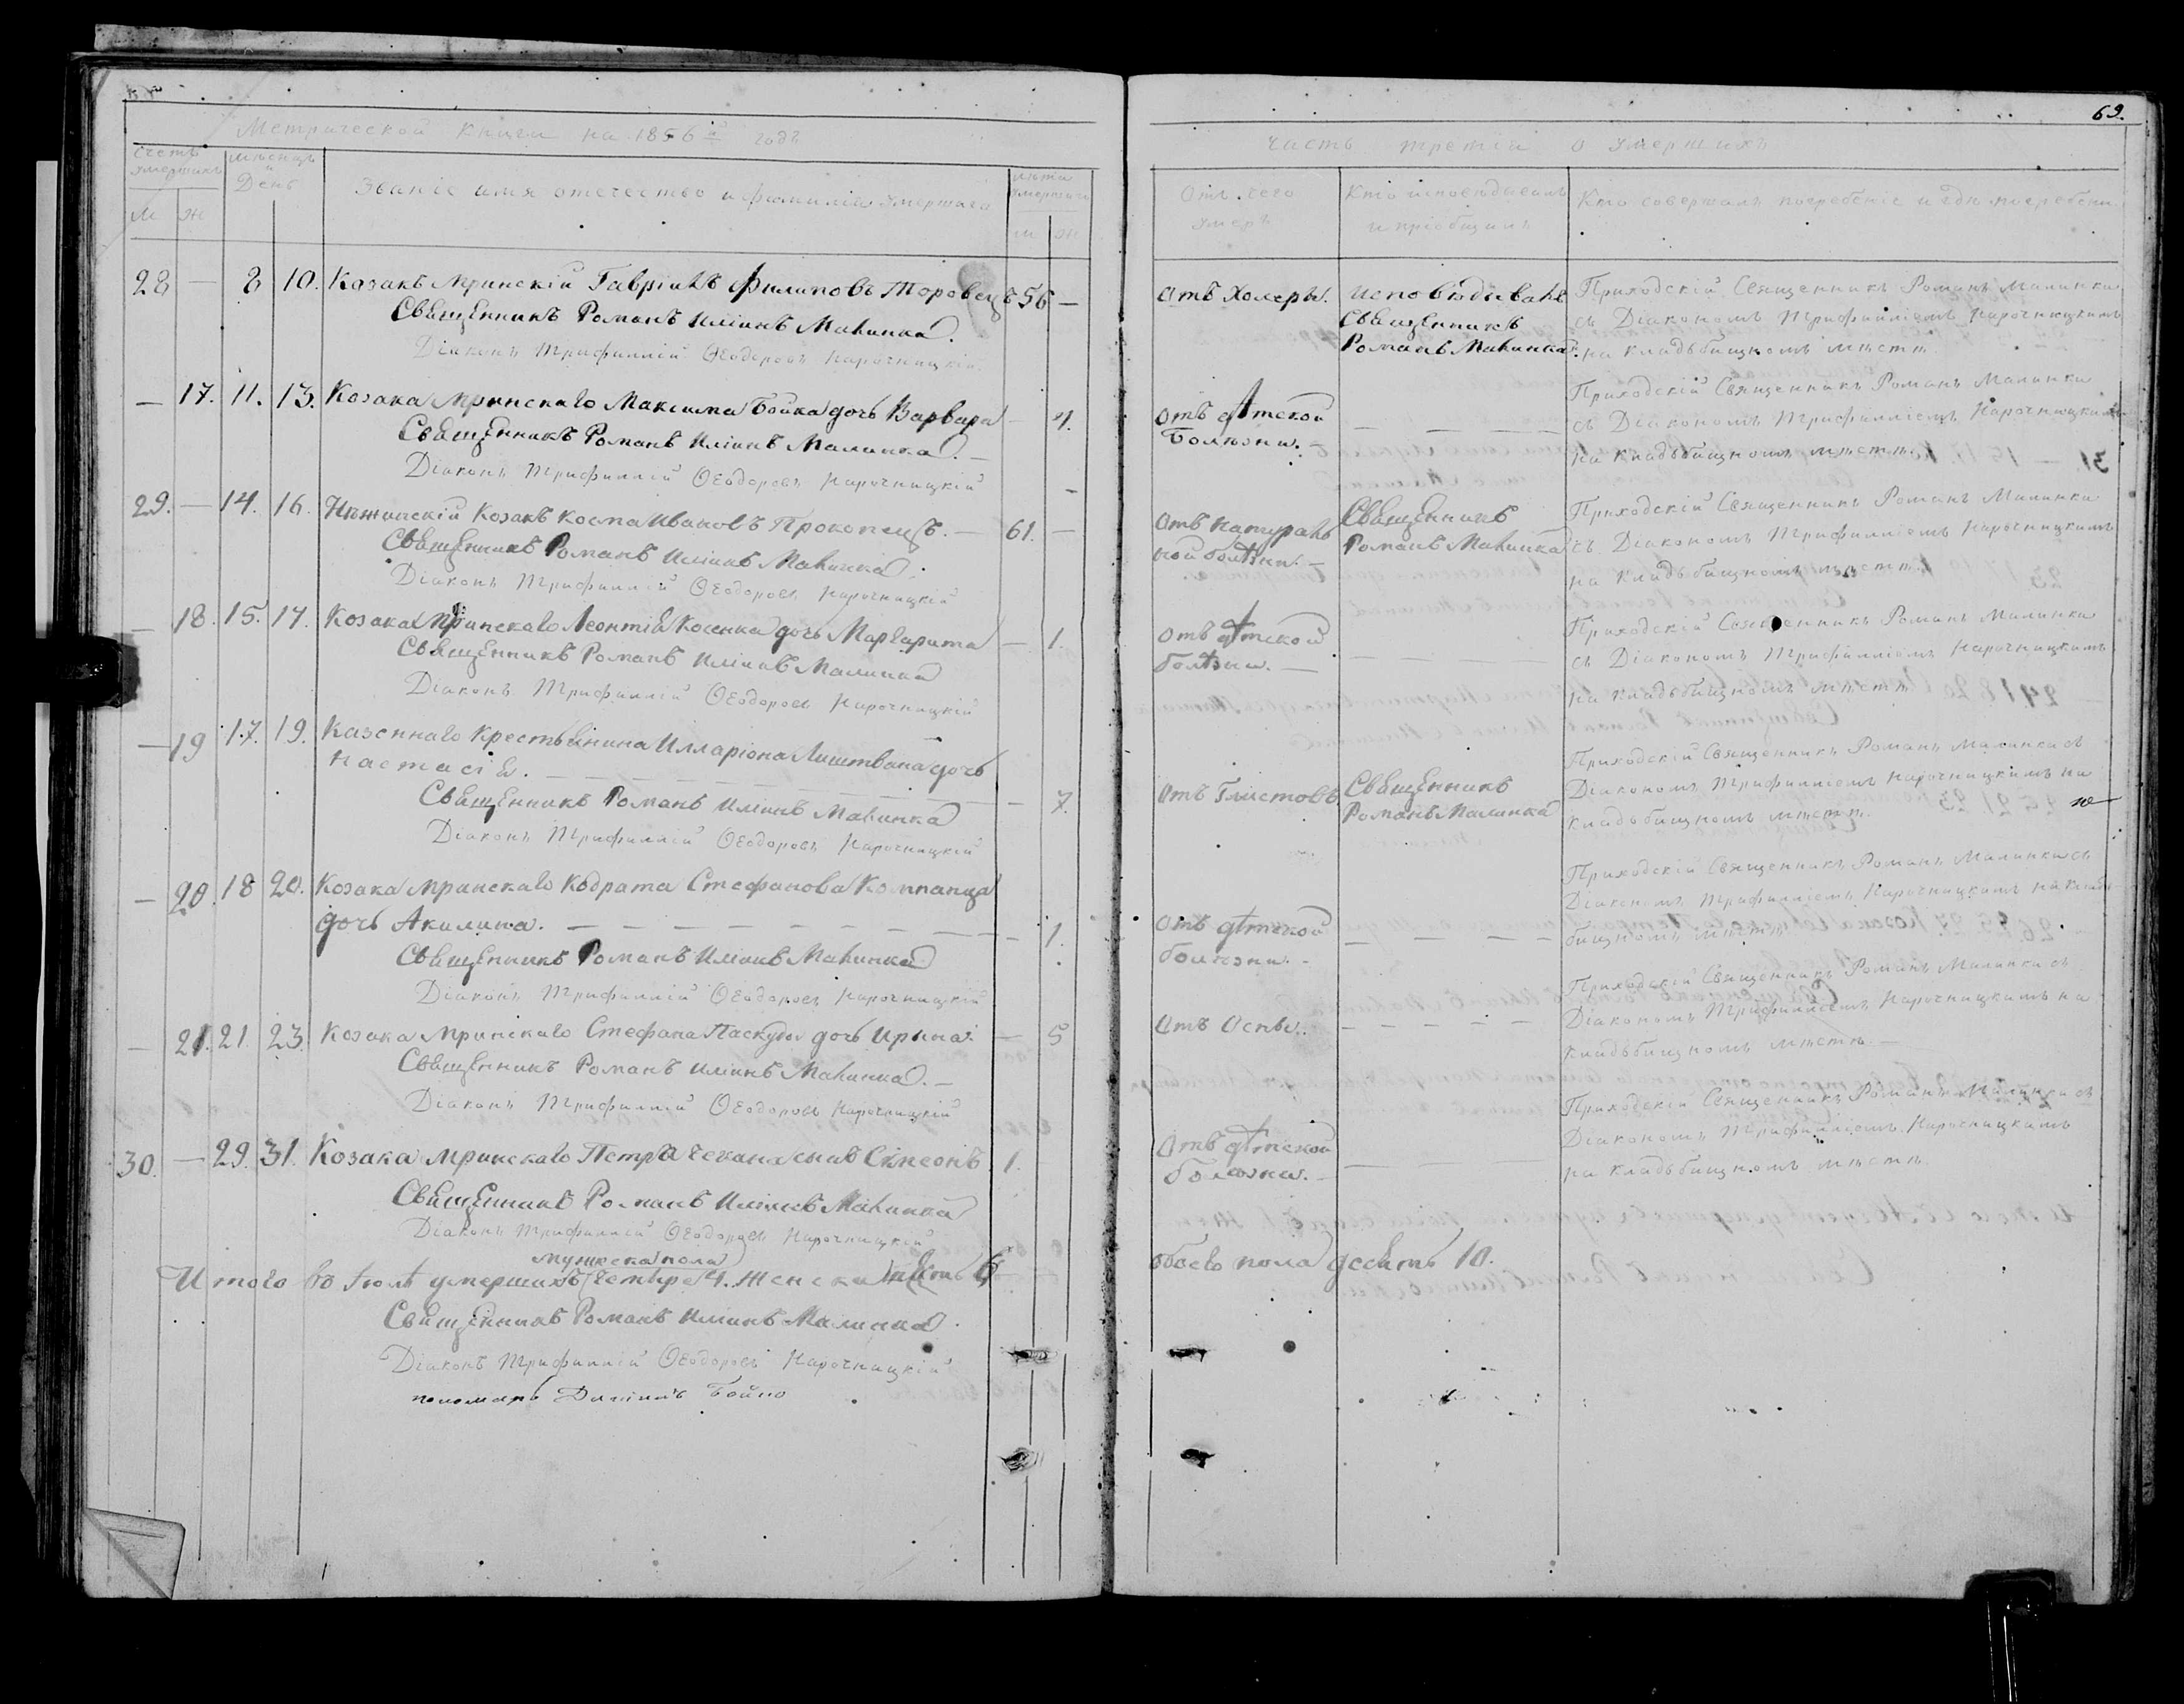 69.
Метрической книги на 1856й годъ
Счетъ умершихъ
мѣсяцъ и День
Званіе имя отечество и фамилія умершаго
лѣта умершаго
м ж
м ж
28 — 8 10. Козакъ Мринскій Гавріилъ Филиповъ Торовецъ 56 —
Священникъ Романъ Иліинъ Малинка.
Діаконъ Трифиллій Ѳеодоровъ Нарочницкій
— 17. 11. 13. Козака Мринскаго Максима Бойка дочь Варвара — 4.
Священникъ Романъ Иліинъ Малинка. —
Діаконъ Трифиллій Ѳеодоровъ Нарочницкій
29. — 14. 16. Нѣжинскій Козакъ Косма Ивановъ Прокопецъ. — 61. —
Священникъ Романъ Иліинъ Малинка.
Діаконъ Трифиллій Ѳеодоровъ Нарочницкій
— 18. 15. 17. Козака Мринскаго Леонтія Косенка дочь Маргарита — 1.
Священникъ Романъ Иліинъ Малинка
Діаконъ Трифиллій Ѳеодоровъ Нарочницкій
— 19 17. 19. Казеннаго Крестьянина Илларіона Лиштвана дочь
Настасія. — — — — —
Священникъ Романъ Иліинъ Малинка — 7.
Діаконъ Трифиллій Ѳеодоровъ Нарочницкій
— 20. 18 20. Козака Мринскаго Кодрата Стефанова Компанца
дочь Акилина. — — — — — — — — — 1.
Священникъ Романъ Иліинъ Малинка
Діаконъ Трифиллій Ѳеодоровъ Нарочницкій
— 21. 21 23. Козака Мринскаго Стефана Паскуды дочь Ирина. — 5
Священникъ Романъ Иліинъ Малинка. —
Діаконъ Трифиллій Ѳеодоровъ Нарочницкій
30. — 29. 31. Козака Мринскаго Петра Чекана сынъ Симеонъ 1.
Священникъ Романъ Иліинъ Малинка
Діаконъ Трифиллій Ѳеодоровъ Нарочницкій
мужеска пола
Итого въ Іюлѣ умершихъ четыре 4. Женска
Священникъ Романъ Иліинъ Малинка.
Діаконъ Трифиллій Ѳеодоровъ Нарочницкій
пономарь Бойко
часть третія о умершихъ
Отъ чего умеръ
Кто исповѣдывалъ и пріобщалъ
Кто совершалъ погребеніе и гдѣ погребены
Отъ Холеры.
исповѣдывалъ
Священникъ
Романъ Малинка.
Приходскій Священникъ Романъ Малинка
съ Діакономъ Трифилліемъ Нарочницкимъ
на кладьбищномъ мѣстѣ
Отъ дѣтской
Болѣзни. —
— — — —
Приходскій Священникъ Романъ Малинка
съ Діакономъ Трифилліемъ Нарочницкимъ
на кладьбищномъ мѣстѣ
Отъ натураль
ной болѣзни. —
Священникъ
Романъ Малинка
Приходскій Священникъ Романъ Малинка
съ Діакономъ Трифилліемъ Нарочницкимъ
на кладьбищномъ мѣстѣ
Отъ дѣтской
болѣзни. —
— — — —
Приходскій Священникъ Романъ Малинка
съ Діакономъ Трифилліемъ Нарочницкимъ
на кладьбищномъ мѣстѣ
Отъ Глистовъ
Священникъ
Романъ Малинка
Приходскій Священникъ Романъ Малинка съ
Діакономъ Трифилліемъ Нарочницкимъ на
кладьбищномъ мѣстѣ.
Отъ дѣтской
болѣзни. —
— — — —
Приходскій Священникъ Романъ Малинка съ
Діакономъ Трифилліемъ Нарочницкимъ на кладь
бищномъ мѣстѣ
Отъ Оспы.
— — — — —
Приходскій Священникъ Романъ Малинка съ
Діакономъ Трифилліемъ Нарочницкимъ на
кладьбищномъ мѣстѣ —
Отъ дѣтской
болѣзни. —
— — —
Приходскій Священникъ Романъ Малинка съ
Діакономъ Трифилліемъ Нарочницкимъ
на кладьбищномъ мѣстѣ
обоего пола десять 10.